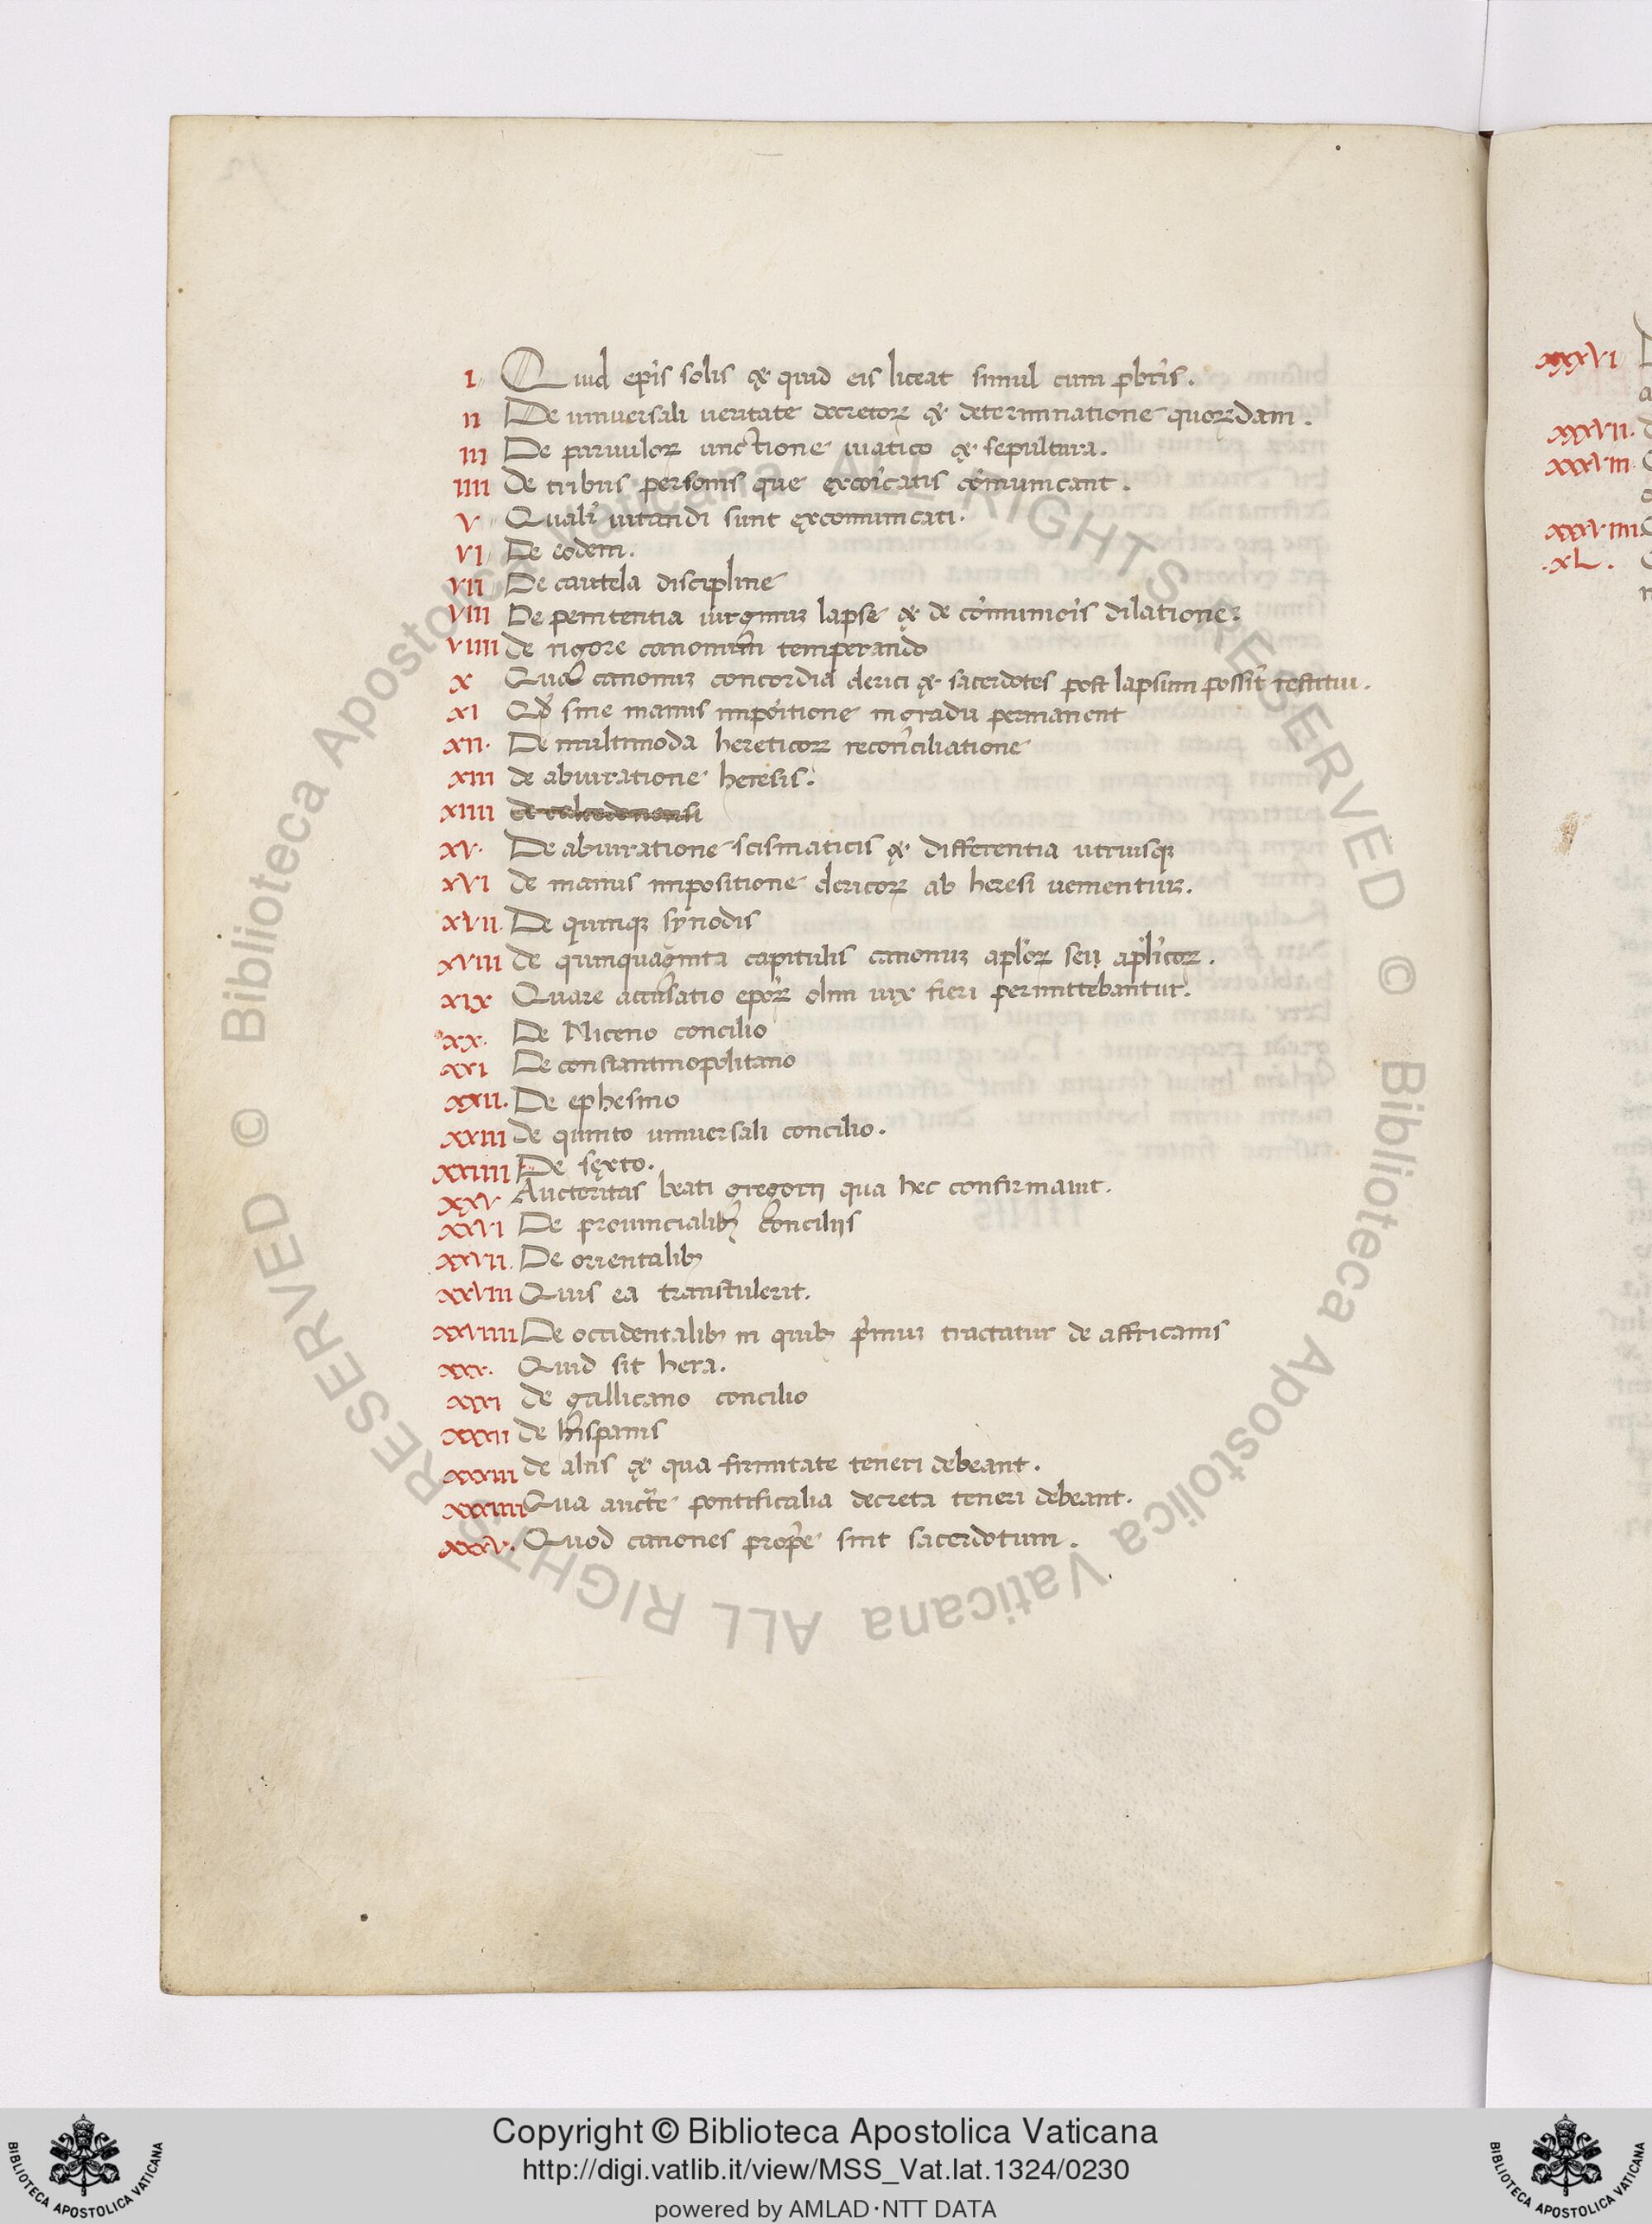 I Quid epis solis & quid eis liceat simul cum pbris.
II De uniuersali ueritate decretoꝝ & determinatione quoꝝdam.
III De paruuloꝝ unctione uiatico & sepultura.
IIII de tribus personis que excoicatis comunicant.
V Qualr uitandi sunt excomunicati.
VI De eodem.
VII De cautela discipline
VIII De penitentia uirginuꝫ lapse & de comunionis dilatione.
VIIII de rigore canonum temperando
X Qua canonuꝫ concordia clerici & sacerdotes post lapsum possit restitui.
XI Qd sine manus impoitione in gradu permanent
XII. De multimoda hereticoꝝ reconciliatione
XIII de abiuratione heresis.
XIIII de calcedonensi
XV. De abiuratione scismaticis & differentia utriusqꝫ
XVI de manus impositione clericoꝝ ab heresi uenientiuꝫ.
XVII. De quinqꝫ synodis
XVIII de quinquaginta capitulis canonuꝫ aploꝝ seu aplicoꝝ.
XIX Quare accusatio epoꝝ olim uix fieri permittebantur.
XX. De Niceno concilio
XXI De constantinopolitano
XXII. De ephesino
XXIII de quinto uniuersali concilio.
XXIIII De sexto.
XXV Auctoritas beati gregorij qua hec confirmauit.
XXVI De prouincialibꝫ concilijs
XXVII. De orientalibꝫ
XXVIII Quis ea transtulerit.
XXVIIII De occidentalibꝫ in quibꝫ primuꝫ tractatur de affricanis
XXX. Quid sit hera.
XXXI de gallicano concilio
XXXII de hispanis
XXXIII de aliis & qua firmitate teneri debeant.
XXXIIII Qua aucte pontificalia decreta teneri debeant.
XXXV. Quod canones proprie sint sacerdotum.
XXXVI
XXXVII.
XXXVIII
XXXVIIII
.XL.
© Biblioteca Apostolica Vaticana ALL RIGHTS RESERVED © Biblioteca Apostolica Vaticana ALL RIGHTS RESERVED
Copyright © Biblioteca Apostolica Vaticana
http://digi.vatlib.it/view/MSS_Vat.lat.1324/0230
powered by AMLAD·NTT DATA
BIBLIOTECA APOSTOLICA VATICANA
BIBLIOTECA APOSTOLICA VATICANA